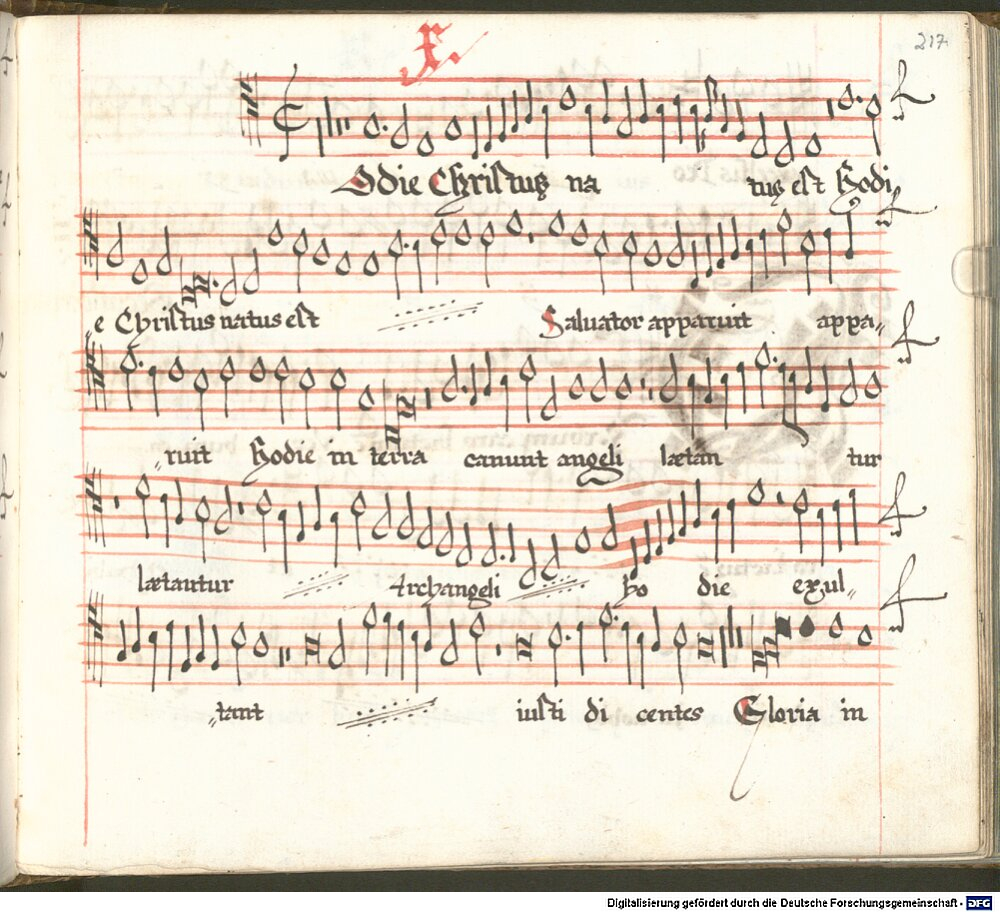 X.
217
Odie Christus na tus est hodi
e Christus natus est Saluator apparuit appa„
„ruit hodie in terra canunt angeli lætan tur
lætantur Archangeli ho die exul„
„tant iusti di centes Gloria in
Digitalisierung gefördert durch die Deutsche Forschungsgemeinschaft - DFG